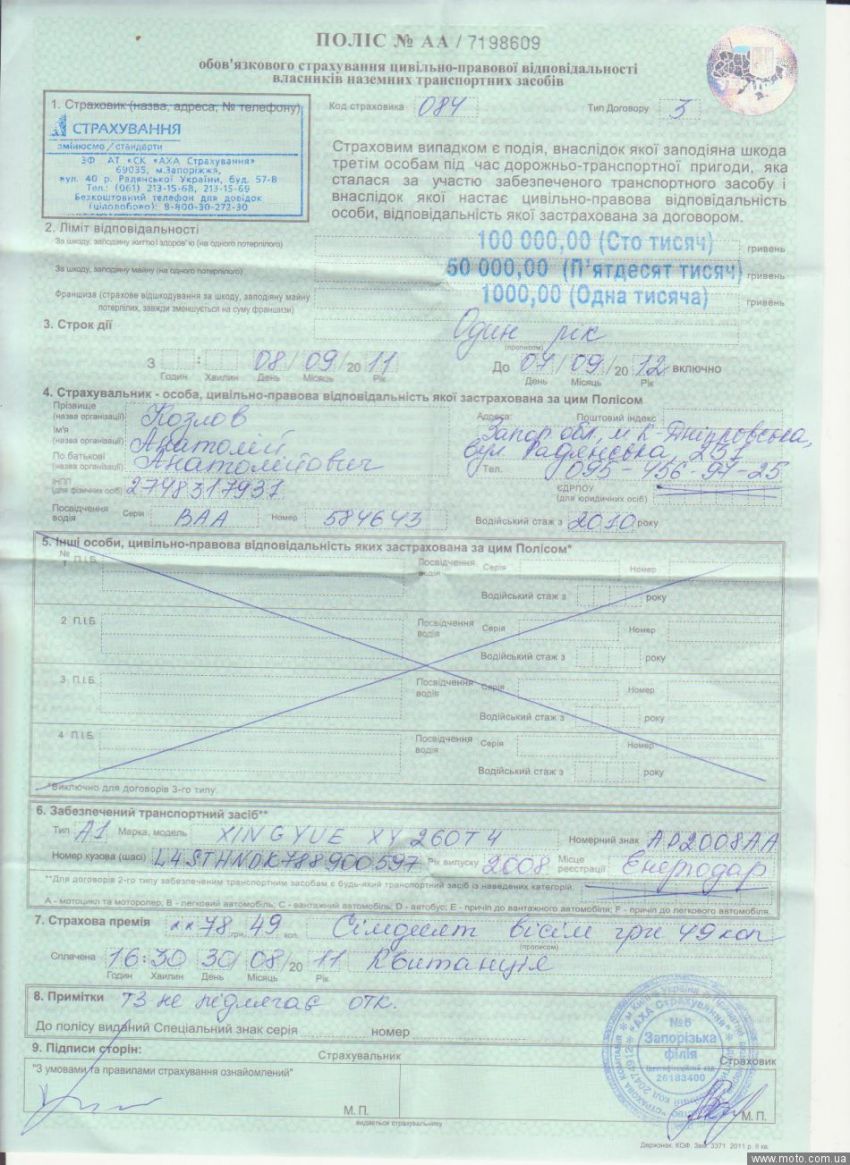 ПОЛІС № АА / 7198609
обов'язкового страхування цивільно-правової відповідальності
власників наземних транспортних засобів
1. Страховик (назва, адреса, № телефону)
Код страховика 084 Тип Договору 3
СТРАХУВАННЯ
змінюємо / стандарти
ЗФ АТ «СК «АХА Страхування»
69035, м.Запоріжжя,
вул. 40 р. Радянської України, буд. 57-В
Тел.: (061) 213-15-68, 213-15-69
Безкоштовний телефон для довідок
(цілодобово): 8-800-30-272-30
Страховим випадком є подія, внаслідок якої заподіяна шкода
третім особам під час дорожньо-транспортної пригоди, яка
сталася за участю забезпеченого транспортного засобу і
внаслідок якої настає цивільно-правова відповідальність
особи, відповідальність якої застрахована за договором.
2. Ліміт відповідальності
За шкоду, заподіяну життю і здоров'ю (на одного потерпілого) 100 000,00 (Сто тисяч) гривень
За шкоду, заподіяну майну (на одного потерпілого) 50 000,00 (П'ятдесят тисяч) гривень
Франшиза (страхове відшкодування за шкоду, заподіяну майну 1000,00 (Одна тисяча) гривень
потерпілих, завжди зменшується на суму франшизи)
3. Строк дії Один рік
(прописом)
З : 08 / 09 / 20 11 До 07 / 09 / 20 12 включно
Годин Хвилин День Місяць Рік День Місяць Рік
4. Страхувальник - особа, цивільно-правова відповідальність якої застрахована за цим Полісом
Прізвище
(назва організації) Козлов Адреса: Поштовий індекс
Ім'я
(назва організації) Анатолій Запор обл, м К-Дніпровська,
По батькові
(назва організації) Анатолійович вул Радянська, 237
Тел. 095-456-97-25
ІНП
(для фізичних осіб) 2748317937 ЄДРПОУ
(для юридичних осіб)
Посвідчення
водія Серія ВАА Номер 584643 Водійський стаж з 2010 року
5. Інші особи, цивільно-правова відповідальність яких застрахована за цим Полісом*
№
1 П.І.Б. Посвідчення
водія Серія Номер
Водійський стаж з року
2 П.І.Б. Посвідчення
водія Серія Номер
Водійський стаж з року
3 П.І.Б. Посвідчення
водія Серія Номер
Водійський стаж з року
4 П.І.Б. Посвідчення
водія Серія Номер
Водійський стаж з року
*Виключно для договорів 3-го типу.
6. Забезпечений транспортний засіб**
Тип А1 Марка, модель XINGYUE XY 260T4 Номерний знак АР2008АА
Номер кузова (шасі) L4STHNDK788900597 Рік випуску 2008 Місце
реєстрації Енергодар
**Для договорів 2-го типу забезпеченим транспортним засобам є будь-який транспортний засіб із наведених категорій:
А - мотоцикл та моторолер; В - легковий автомобіль; С - вантажний автомобіль; D - автобус; Е - причіп до вантажного автомобіля; F - причіп до легкового автомобіля.
7. Страхова премія хх78 грн. 49 коп. Сімдесят вісім грн 49 коп
(прописом)
Сплачена 16:30 30 / 08 / 20 11 Квитанція
Годин Хвилин День Місяць Рік
8. Примітки ТЗ не підлягає отк.
До полісу виданий Спеціальний знак серія номер
9. Підписи сторін: Страхувальник Страховик
"З умовами та правилами страхування ознайомлений"
М. П. М. П.
видається страхувальнику
«АХА Страхування»
№6
Запорізька
філія
Ідентифікаційний код
26183400
Держзнак. КОФ. Зам. 3371 2011 р. II кв.
www.moto.com.ua